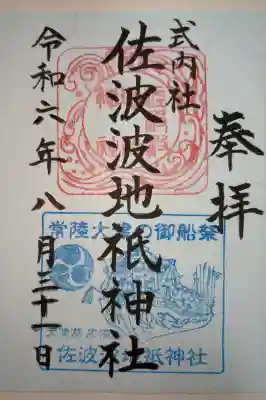 奉拝
式内社
佐波波地祇神社
令和六年八月三十一日
常陸大津の御船祭
佐波波地祇神社